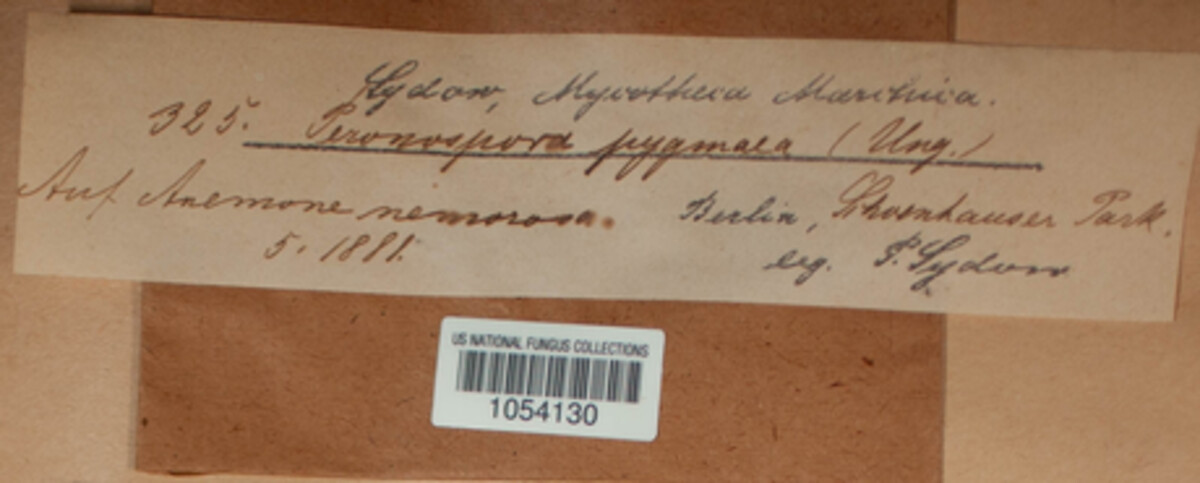 Sydow, Mycotheca Marchica.
325. Peronospora pygmaea (Ung.)
Auf Anemone nemorosa. Berlin, Schoenhauser Park.
5. 1881. leg. P. Sydow
US NATIONAL FUNGUS COLLECTIONS
1054130